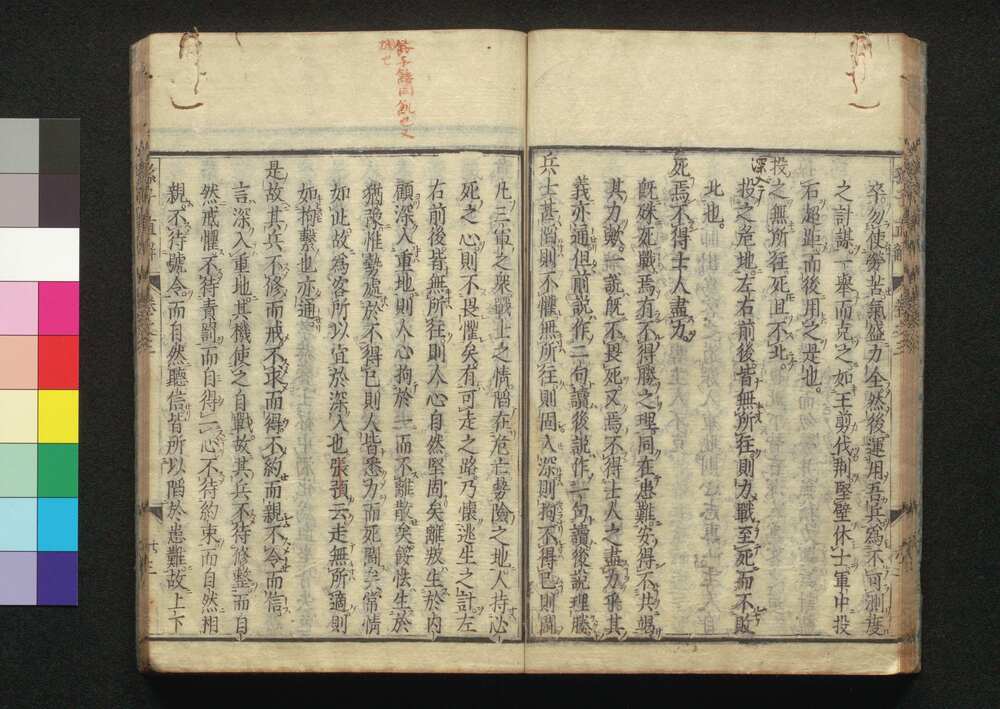 卒勿使勞苦氣盛力全然後運用吾兵爲不可測度
之計謀一舉而克之如王剪伐荆堅壁休士軍中投
石超距而後用之是也
投之無所往死且不北
投之危地左右前後皆無所往則力戰至死而不敗
北也
死焉不得士人盡力
既殊死戰焉有不得勝之理同在患難安得不共竭
其力歟一說既不畏死又焉不得士人之盡力乎其
義亦通但前說作二句讀後說作一句讀後說理勝
兵士甚陷則不懼無所往則固入深則拘不得已則鬪
凡三軍之衆戰士之情陷在危亡勢險之地人持必
死之心則不畏懼矣有可走之路乃懷逃生之計左
右前後皆無所往則人心自然堅固矣離叛生於内
顧深入重地則人心拘於一而不離散矣餒怯生於
猶豫惟勢處於不得已則人皆悉力而死鬪矣常情
如此故爲客所以宜於深入也張預云走無所適則
如拘繫也亦通
是故其兵不修而戒不求而得不約而親不令而信
言深入重地其機使之自戰故其兵不待修整而自
然戒懼不待責罰而自得一心不待約束而自然相
親不待號令而自然聽信皆所以陷於患難故上下
深入
孫子直解
卷之三